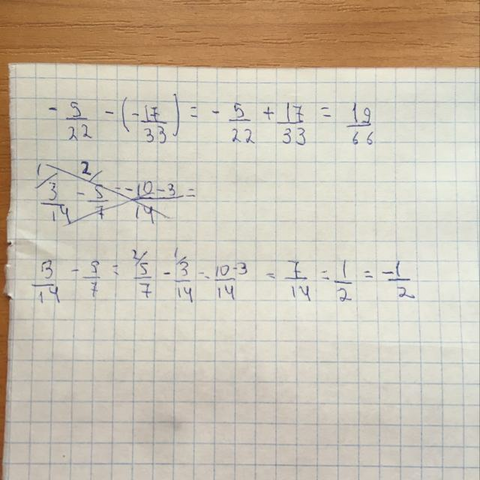 - 5/22 - (-17/33) = - 5/22 + 17/33 = 19/66
1 2
3/14 - 5/7 = -10-3/14 =
3/14 - 5/7 = 2/ 5/7 - 1/ 3/14 = 10-3/14 = 7/14 = 1/2 = -1/2